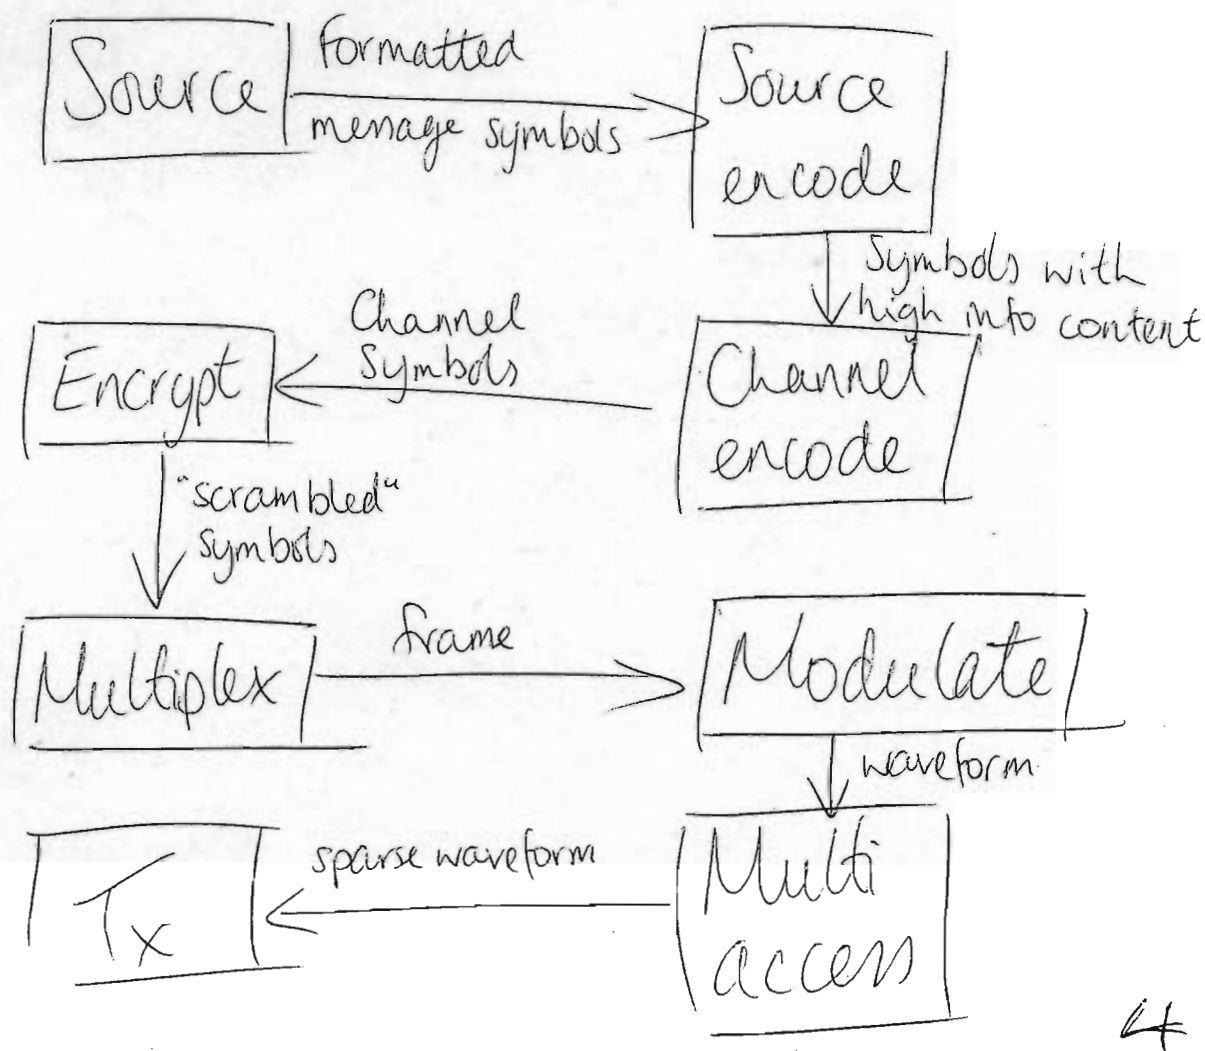 Source
formatted
message symbols
Source
encode
Symbols with
high info content
Channel
encode
Channel
Symbols
Encrypt
"scrambled"
symbols
Multiplex
frame
Modulate
waveform
Multi
access
sparse waveform
Tx
4